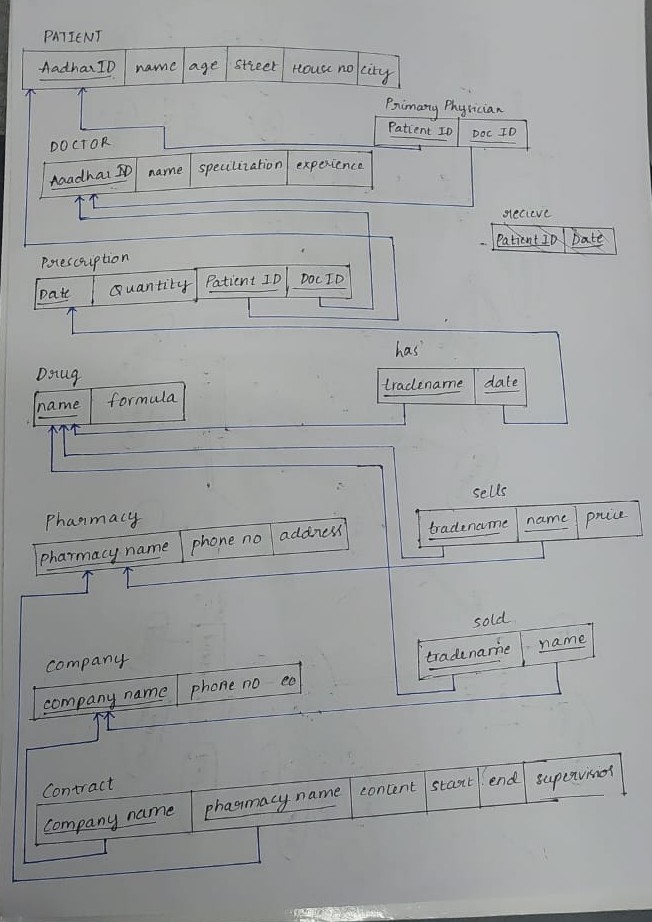 PATIENT
Aadhar ID name age Street House no city
Primary Physician
Patient ID Doc ID
DOCTOR
Aaadhar ID name specilization experience
recieve
Patient ID Date
Prescription
Date Quantity Patient ID Doc ID
has
tradename date
Drug
name formula
sells
tradename name price
Pharmacy
pharmacy name phone no address
sold
tradename name
company
company name phone no
Contract
Company name pharmacy name content start end supervisior